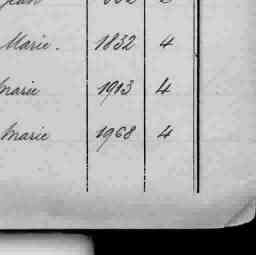 Marie. 1832 4
Marie 1913 4
Marie 1968 4